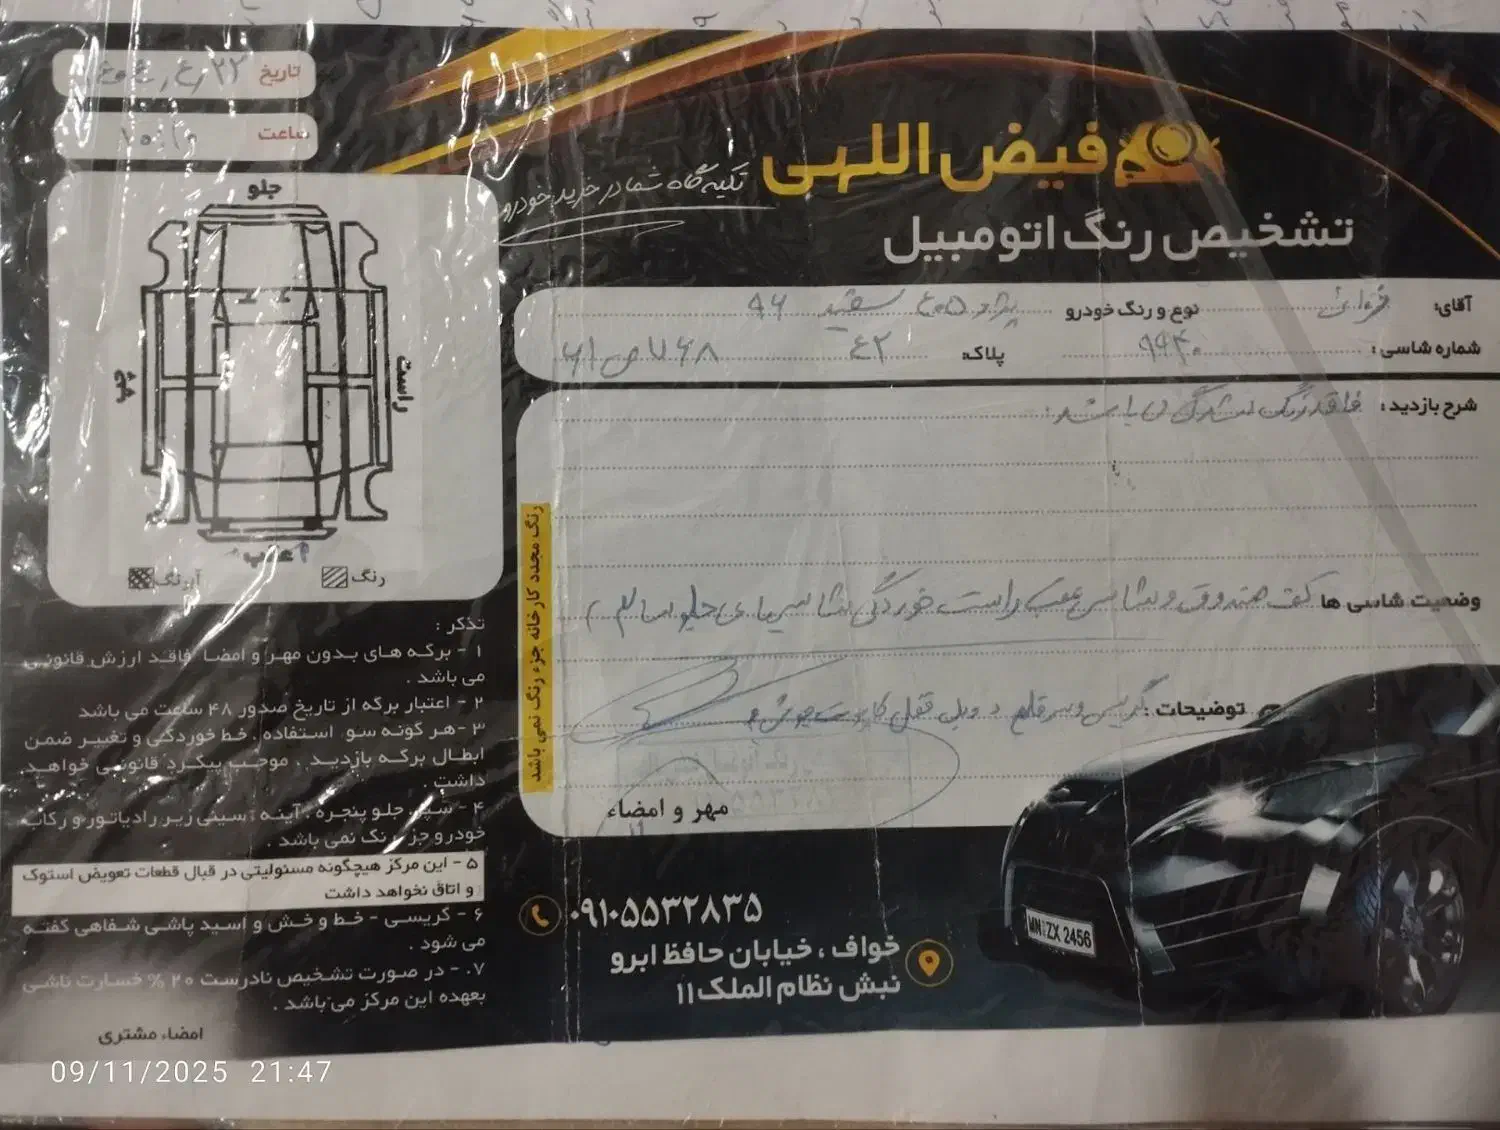 فیض اللهی
تکیه گاه شما در خرید خودرو
تشخیص رنگ اتومبیل
تاریخ
ساعت
جلو
راست
چپ
عقب
رنگ
آبرنگ
آقای:
نوع و رنگ خودرو پژو ۴۰۵ سفید ۹۶
شماره شاسی: ۹۹۴۰ پلاک ۴۲ ۷۶۸
شرح بازدید: فاقد رنگ شدگی می باشد
وضعیت شاسی ها کف صندوق و شاسی عقب راست خوردگی شاسیهای جلو سالم
توضیحات: گریس و سرقلم و قفل کاپوت جوش
مهر و امضاء
رنگ مجدد کارخانه جزء رنگ نمی باشد
تذکر :
۱ - برگه های بدون مهر و امضا فاقد ارزش قانونی
می باشد .
۲ - اعتبار برگه از تاریخ صدور ۴۸ ساعت می باشد
۳ -هر گونه سو. استفاده . خط خوردگی و تغییر ضمن
ابطال برگه بازدید . موجب پیگرد قانونی خواهد
داشت .
۴ - سپر جلو پنجره . آینه . سینی زیر رادیاتور و رکاب
خودرو جز رنگ نمی باشد .
۵ - این مرکز هیچگونه مسئولیتی در قبال قطعات تعویض استوک
و اتاق نخواهد داشت
۶ - گریسی - خط و خش و اسید پاشی شفاهی گفته
می شود .
۷. - در صورت تشخیص نادرست ۲۰ % خسارت ناشی
بعهده این مرکز می باشد .
امضاء مشتری
۰۹۱۰۵۵۳۲۸۳۵
خواف ، خیابان حافظ ابرو
نبش نظام الملک ۱۱
MN ZX 2456
09/11/2025 21:47